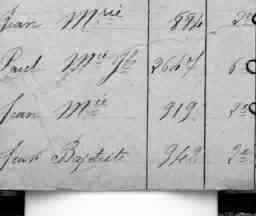 Jean Mrie 884 2o
Paul Mie Jh 2647 6o
Jean Mie 919 2o
Jean Baptiste 942 2o